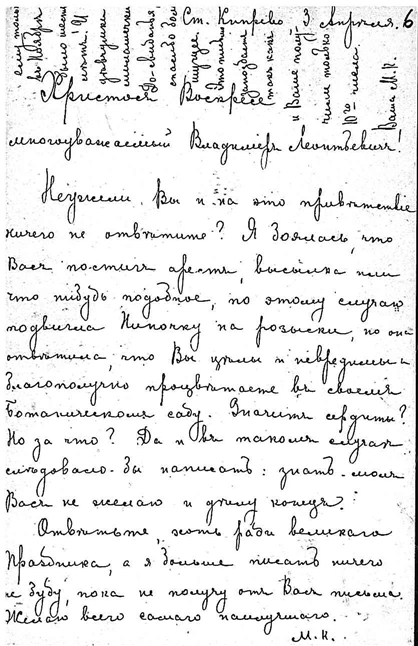 Ст. Кипрево 3 Апреля. 6
Христосъ Воскресе
многоуважаемый Владиміръ Леонтьевичъ!
Неужели Вы и на это привѣтствіе
ничего не отвѣтите? Я боялась, что
Васъ постигъ арестъ, высылка или
что нибудь подобное, по этому случаю
подвигла Ниночку на розыски, но она
отвѣтила, что Вы цѣлы и невредимы и
благополучно процвѣтаете въ своемъ
Ботаническомъ саду. Значитъ сердиты?
Но за что? Да и въ такомъ случаѣ
слѣдовало-бы написать: знать-молъ
Васъ не желаю и дѣлу конецъ.
Отвѣтьте, хоть ради великаго
Праздника, а я больше писать ничего
не буду, пока не получу отъ Васъ письма.
Желаю всего самаго наилучшаго.
М.К.
до свиданья,
спасибо
это письмо
запоздаетъ
такъ какъ
и Ваше полу-
чимъ только
10го числа.
Ваша М.К.